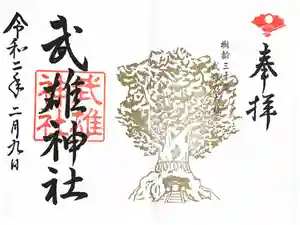 奉拝
樹齢三千
武雄神社
武雄神社
令和二年二月九日